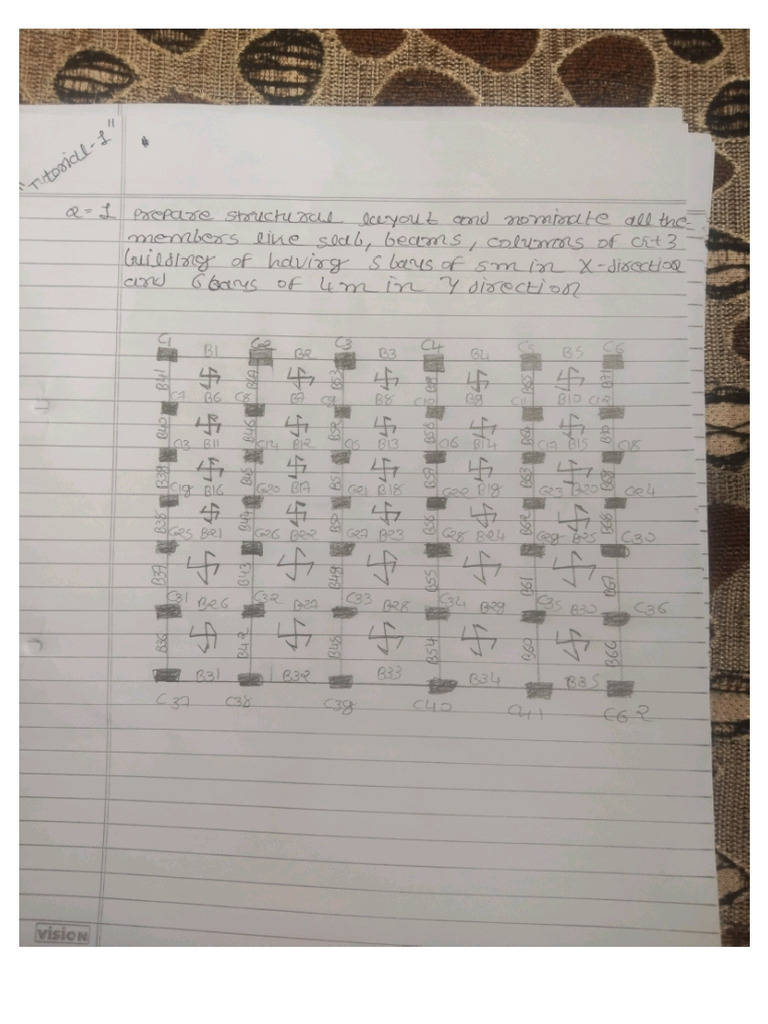 "Tutorial-1"
Q=1 Prepare structural layout and nominate all the
members line slab, beams, columns of G+3
building of having 5 bays of 5m in X-direction
and 6 bays of 4m in Y direction
C1 C2 C3 C4 C5 C6
B1 B2 B3 B4 B5
B41 B53 B65 B71
C7 B6 C8 B7 B8 C10 B9 C11 B10
B40 B46 B52 B58 B64
C13 B11 C14 B12 B13 C16 B14 C17 B15 C18
B39 B45 B51 B57 B63 B69
C18 B16 C20 B17 C21 B18 C22 B19 C23 B20 C24
B38 B50 B56 B62 B68
C25 B21 C26 B22 C27 B23 C28 B24 C29 B25 C30
B37 B43 B49 B55 B61 B67
C31 B26 C32 B27 C33 B28 C34 B29 C35 B30 C36
B36 B42 B48 B54 B60 B66
B31 B32 B33 B34 B35
C37 C38 C39 C40 C41 C62
vision